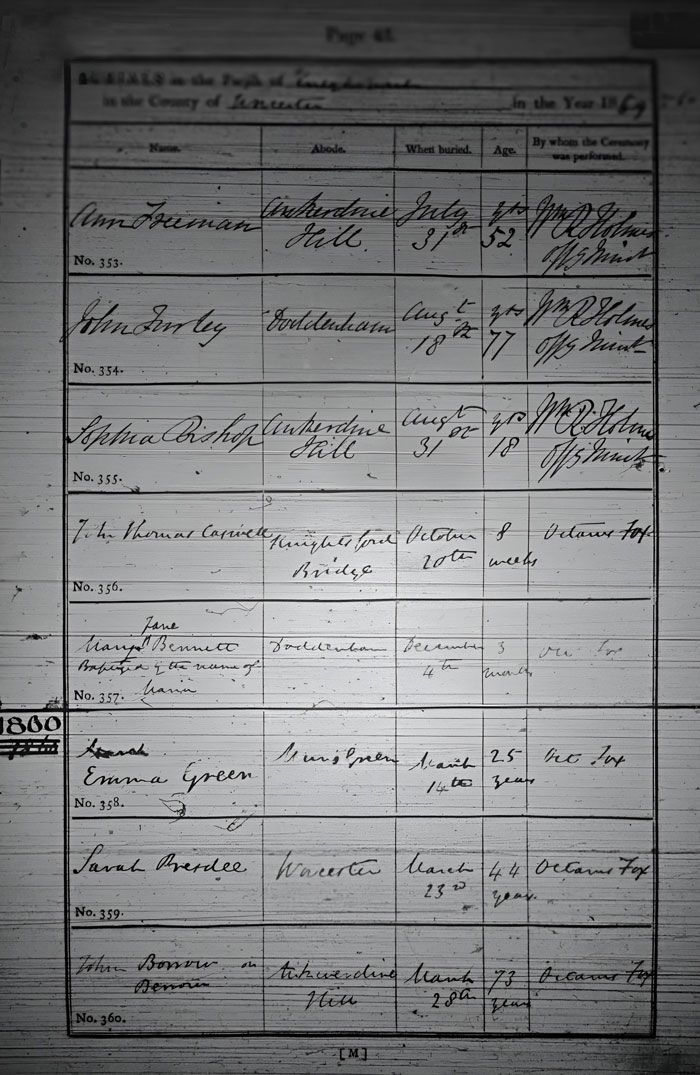 Page
BURIALS in the Parish of Knightwick
in the County of Worcester in the Year 1859
Name. Abode. When buried. Age. By whom the Ceremony was performed.
Ann Freeman Ankerdine July yrs Wm R. Holmes
Hill 31st 52 offg Minist
No. 353.
John Furley Doddenham Augt yrs Wm R Holmes
18th 77 offg Minist
No. 354.
Sophia Bishop Ankerdine Augt yrs Wm R. Holmes
Hill 31st 18 offg Minist
No. 355.
John Thomas Caswell Knightsford October 8 Octavus Fox
Bridge 20th weeks
No. 356.
Jane
Mary Bennett Doddenham December 3 Oct Fox
Baptized by the name of 4th months
Maria
No. 357.
1860
1860
March
Emma Green Green March 25 Oct Fox
14th years
No. 358.
Sarah Presdee Worcester March 44 Octavus Fox
23rd years
No. 359.
John Borrow or Ankerdine March 73 Octavus Fox
Berrow Hill 28th years
No. 360.
[M]